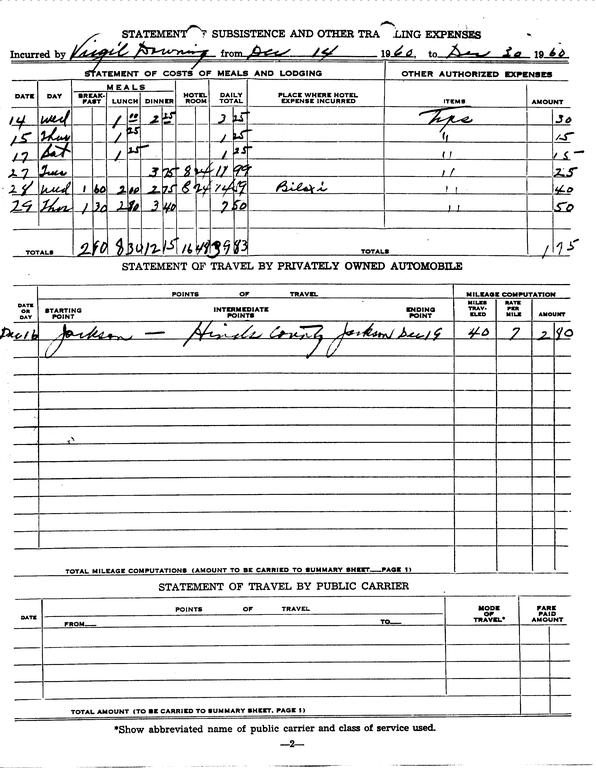 STATEMENT OF SUBSISTENCE AND OTHER TRA LING EXPENSES
Incurred by Virgil Downing from Dec 14 1960, to Dec 30 1960
STATEMENT OF COSTS OF MEALS AND LODGING OTHER AUTHORIZED EXPENSES
DATE DAY MEALS BREAK-FAST LUNCH DINNER HOTEL ROOM DAILY TOTAL PLACE WHERE HOTEL EXPENSE INCURRED ITEMS AMOUNT
14 Wed 1 00 2 25 3 25 Tips 30
15 Thur 1 25 1 25 " 15
17 Sat 1 25 1 25 " 15
27 Tues 3 75 8 24 11 99 " 25
28 Wed 1 60 2 00 2 75 8 24 14 59 Biloxi " 40
29 Thur 1 30 2 80 3 40 7 50 " 50
TOTALS 2 90 8 30 12 15 16 48 39 83 TOTALS 1 75
STATEMENT OF TRAVEL BY PRIVATELY OWNED AUTOMOBILE
DATE OR DAY POINTS OF TRAVEL STARTING POINT INTERMEDIATE POINTS ENDING POINT MILEAGE COMPUTATION MILES TRAV-ELED RATE PER MILE AMOUNT
Dec 16 Jackson — Hinds County Jackson Dec 19 40 7 2 80
TOTAL MILEAGE COMPUTATIONS (AMOUNT TO BE CARRIED TO SUMMARY SHEET__PAGE 1)
STATEMENT OF TRAVEL BY PUBLIC CARRIER
DATE POINTS OF TRAVEL FROM__ TO__ MODE OF TRAVEL* FARE PAID AMOUNT
TOTAL AMOUNT (TO BE CARRIED TO SUMMARY SHEET. PAGE 1)
*Show abbreviated name of public carrier and class of service used.
—2—